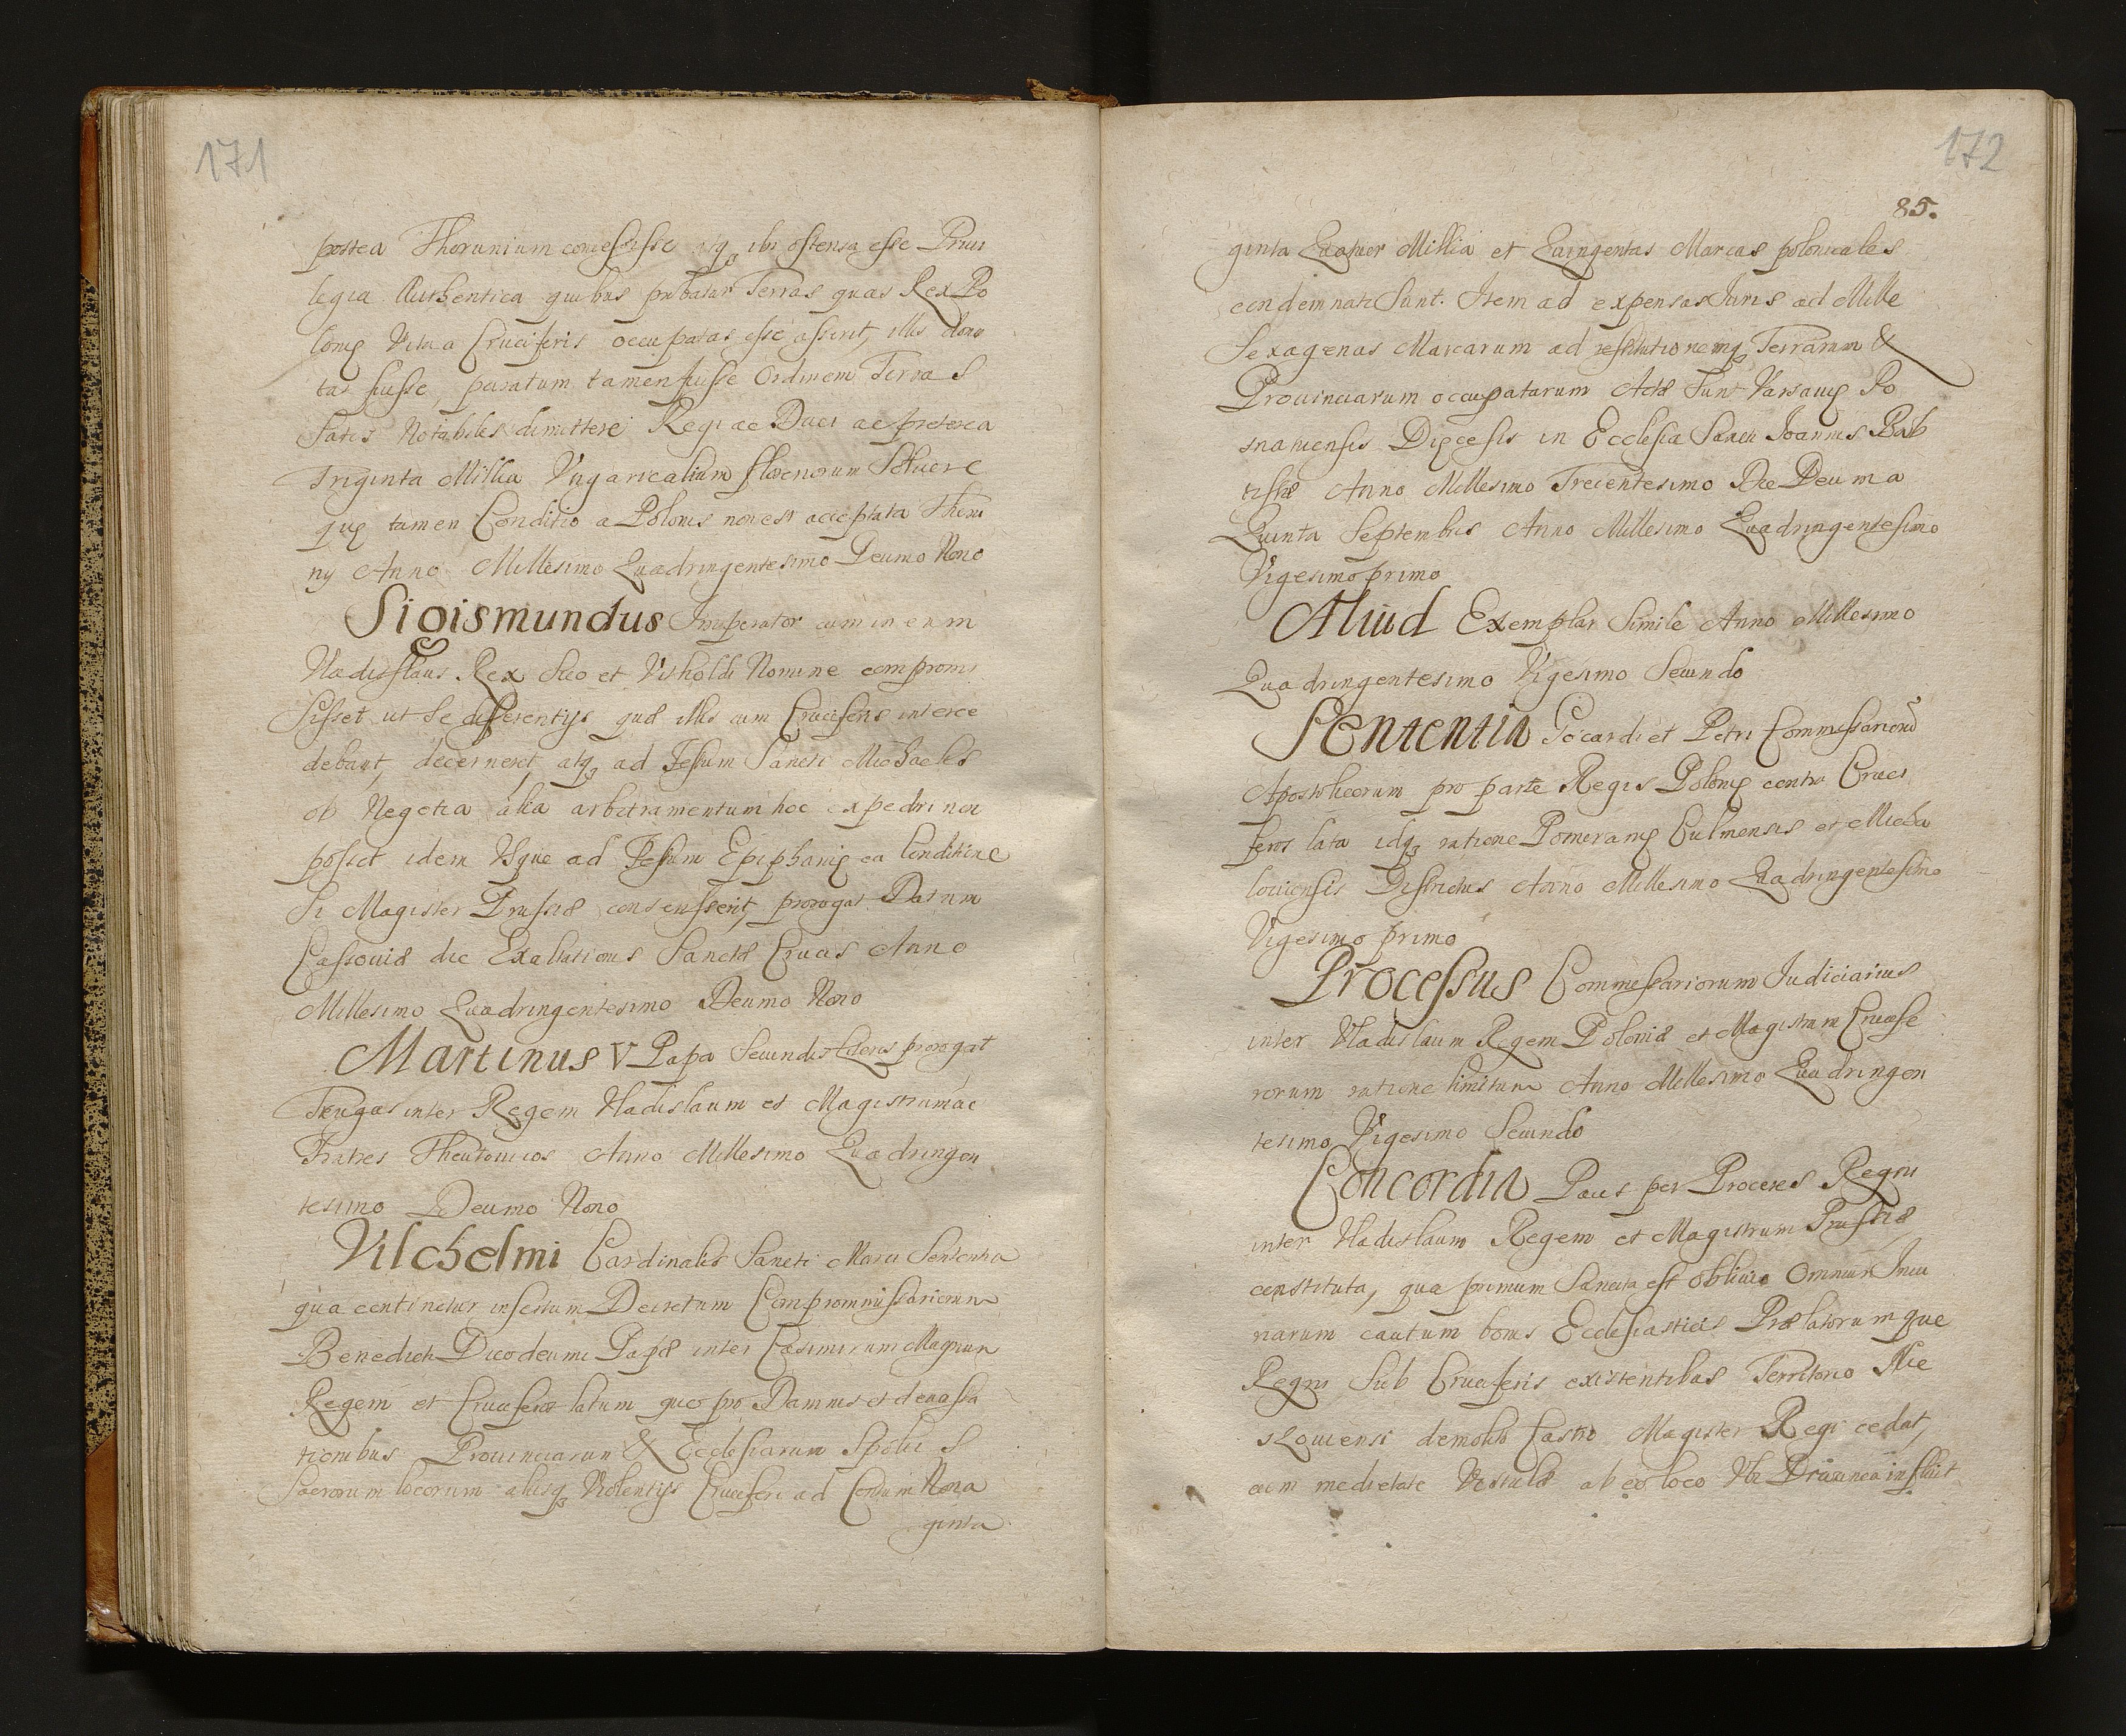 171
postea Thorunium concessisse atq₃ ibi ostensa esse Priui
legia Authentica quibus probatur Terras quas Rex Po
lonię Vti a Cruciferis occupatas esse asserit, illis dona
tas fuisse, paratum tamen fuisse Ordinem Terras
Satis Notabiles dimittere Regi ac Duci ac preterea
Triginta Millia Vngaricalium florenorum Soluere
quę tamen Conditio a Polonis non est acceptata Thoru
nij Anno Millesimo Quadringentesimo Decimo Nono
Sigismundus Imperator cum in eum
Vladislaus Rex Suo et Vitholdi Nomine compromi
Sisset ut de differentijs quæ illis cum Cruciferis interce
debant, decerneret, atq₃ ad Festum Sancti Michaelis
ob Negotia alia arbitramentum hoc expediri non
posset idem Vsque ad Festum Epiphanię ea Conditione
Si Magister Prussiæ consenserit, prorogat Datum
Cassouiæ die Exaltationis Sanctæ Crucis Anno
Millesimo Quadringentesimo Decimo Nono
Martinus V Papa Secundis Literis prorogat
Treugas inter Regem Vladislaum et Magistrum ac
Fratres Theutonicos Anno Millesimo Quadringen
tesimo Decimo Nono
Vilchelmi Cardinalis Sancti Marci Sententia
qua continetur insertum Decretum Compromissariorum
Benedicti Duodecimi Papæ inter Casimirum Magnum
Regem et Cruciferos latum quo pro Damnis et deuasta
tionibus Prouinciarum & Ecclesiarum Spolijs
Sacrorum locorum alijsq₃ Violentijs Cruciferi ad Centum Nona
ginta
172
85.
ginta Quatuor Millia et Quingentas Marcas polonicales
condemnati Sunt. Item ad expensas Iuris ad Mille
Sexagenas Marcarum ad restitutionemq₃ Terrarum &
Prouinciarum occupatarum Acta Sunt Varsauię Po
snaniensis Dięcesis in Ecclesia Sancti Ioannis Bab
tistæ Anno Millesimo Trecentesimo Die Decima
Quinta Septembris Anno Millesimo Quadringentesimo
Vigesimo primo
Aliud Exemplar Simile Anno Millesimo
Quadringentesimo Vigesimo Secundo
Sententia Gocardi et Petri Commissariorũ
Apostolicorum pro parte Regis Polonię contra Cruci
feros lata idq₃ ratione Pomeranię Culmensis et Micha
louiensis Districtus Anno Millesimo Quadringentesimo
Vigesimo primo
Processus Commissariorum Iudiciarius
inter Vladislaum Regem Poloniæ et Magistrum Crucife
rorum ratione limitum Anno Millesimo Quadringen
tesimo Vigesimo Secundo
Concordia Pacis per Proceres Regni
inter Vladislaum Regem et Magistrum Prussiæ
constituta, qua primum Sancita est obliuio Omnium Iniu
riarum cautum bonis Ecclesiasticis Prælatorumque
Regni Sub Cruciferis existentibus Territorio Nie
sZouiensi demolito Castro Magister Regi cedat,
cum medietate Vistulæ ab eo loco Vbi Driuinca influit